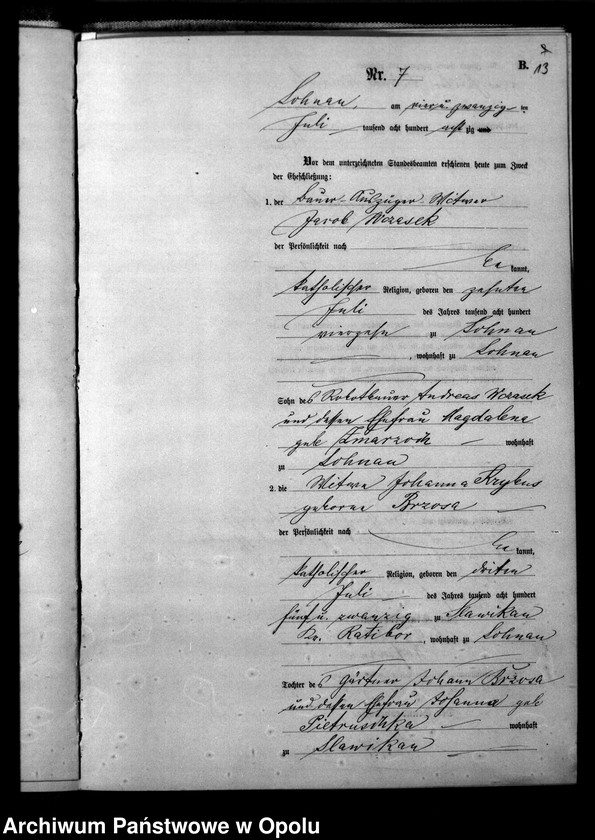 8
B.
13
Nr. 7
Lohnau, am vier u. zwanzigsten
Juli tausend acht hundert achtzig und
Vor dem unterzeichneten Standesbeamten erschienen heute zum Zweck
der Eheschließung:
1. der Bauer-Auszüger-Witwer
Jacob Wrasek
der Persönlichkeit nach
be kannt,
katholischer Religion, geboren den zehnten
Juli des Jahres tausend acht hundert
vierzehn zu Lohnau
, wohnhaft zu Lohnau
Sohn des Robotbauer Andreas Wrasek
und dessen Ehefrau Magdalena
geb wohnhaft
zu Lohnau
2. die Witwe Johanna Krybus
geborene Brzosa
der Persönlichkeit nach
be kannt,
katholischer Religion, geboren den driten
Juli des Jahres tausend acht hundert
fünf u. zwanzig zu Slawikau
Kr. Ratibor, wohnhaft zu Lohnau
Tochter des Gärtner Johann Brzosa
und dessen Ehefrau Johanna geb
Pietruschka wohnhaft
zu Slawikau
Archiwum Państwowe w Opolu